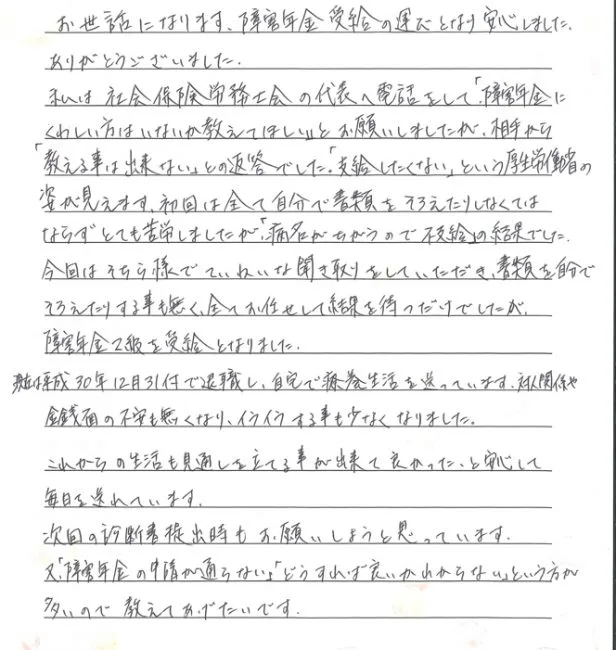 お世話になります。障害年金受給の運びとなり安心しました。
ありがとうございました。
私は社会保険労務士会の代表へ電話をして「障害年金に
くわしい方はいないか教えてほしい」とお願いしましたが、相手から
「教える事は出来ない」との返答でした。「支給したくない」という厚生労働省の
姿が見えます。初回は全て自分で書類をそろえたりしなくては
ならずとても苦労しましたが、「病名がちがうので不支給」の結果でした。
今回はそちら様でていねいな聞き取りをしていただき、書類を自分で
そろえたりする事も無く、全てお任せして結果を待つだけでしたが、
障害年金2級を受給となりました。
現在は平成30年12月31付で退職し、自宅で療養生活を送っています。対人関係や
金銭面の不安も無くなり、イライラする事も少なくなりました。
これからの生活も見通しを立てる事が出来て良かった、と安心して
毎日を送れています。
次回の診断書提出時もお願いしようと思っています。
又、「障害年金の申請が通らない」「どうすれば良いかわからない」という方が
多いので教えてあげたいです。